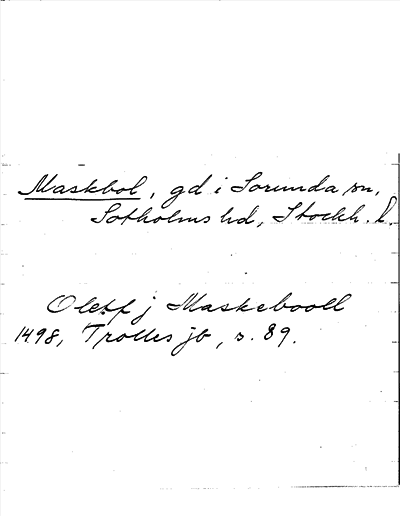 Maskbol, gd i Sorunda sn,
Sotholms hd, Stockh. l.
Oleff j Maskebooll
1498, Trolles jb, s. 89.